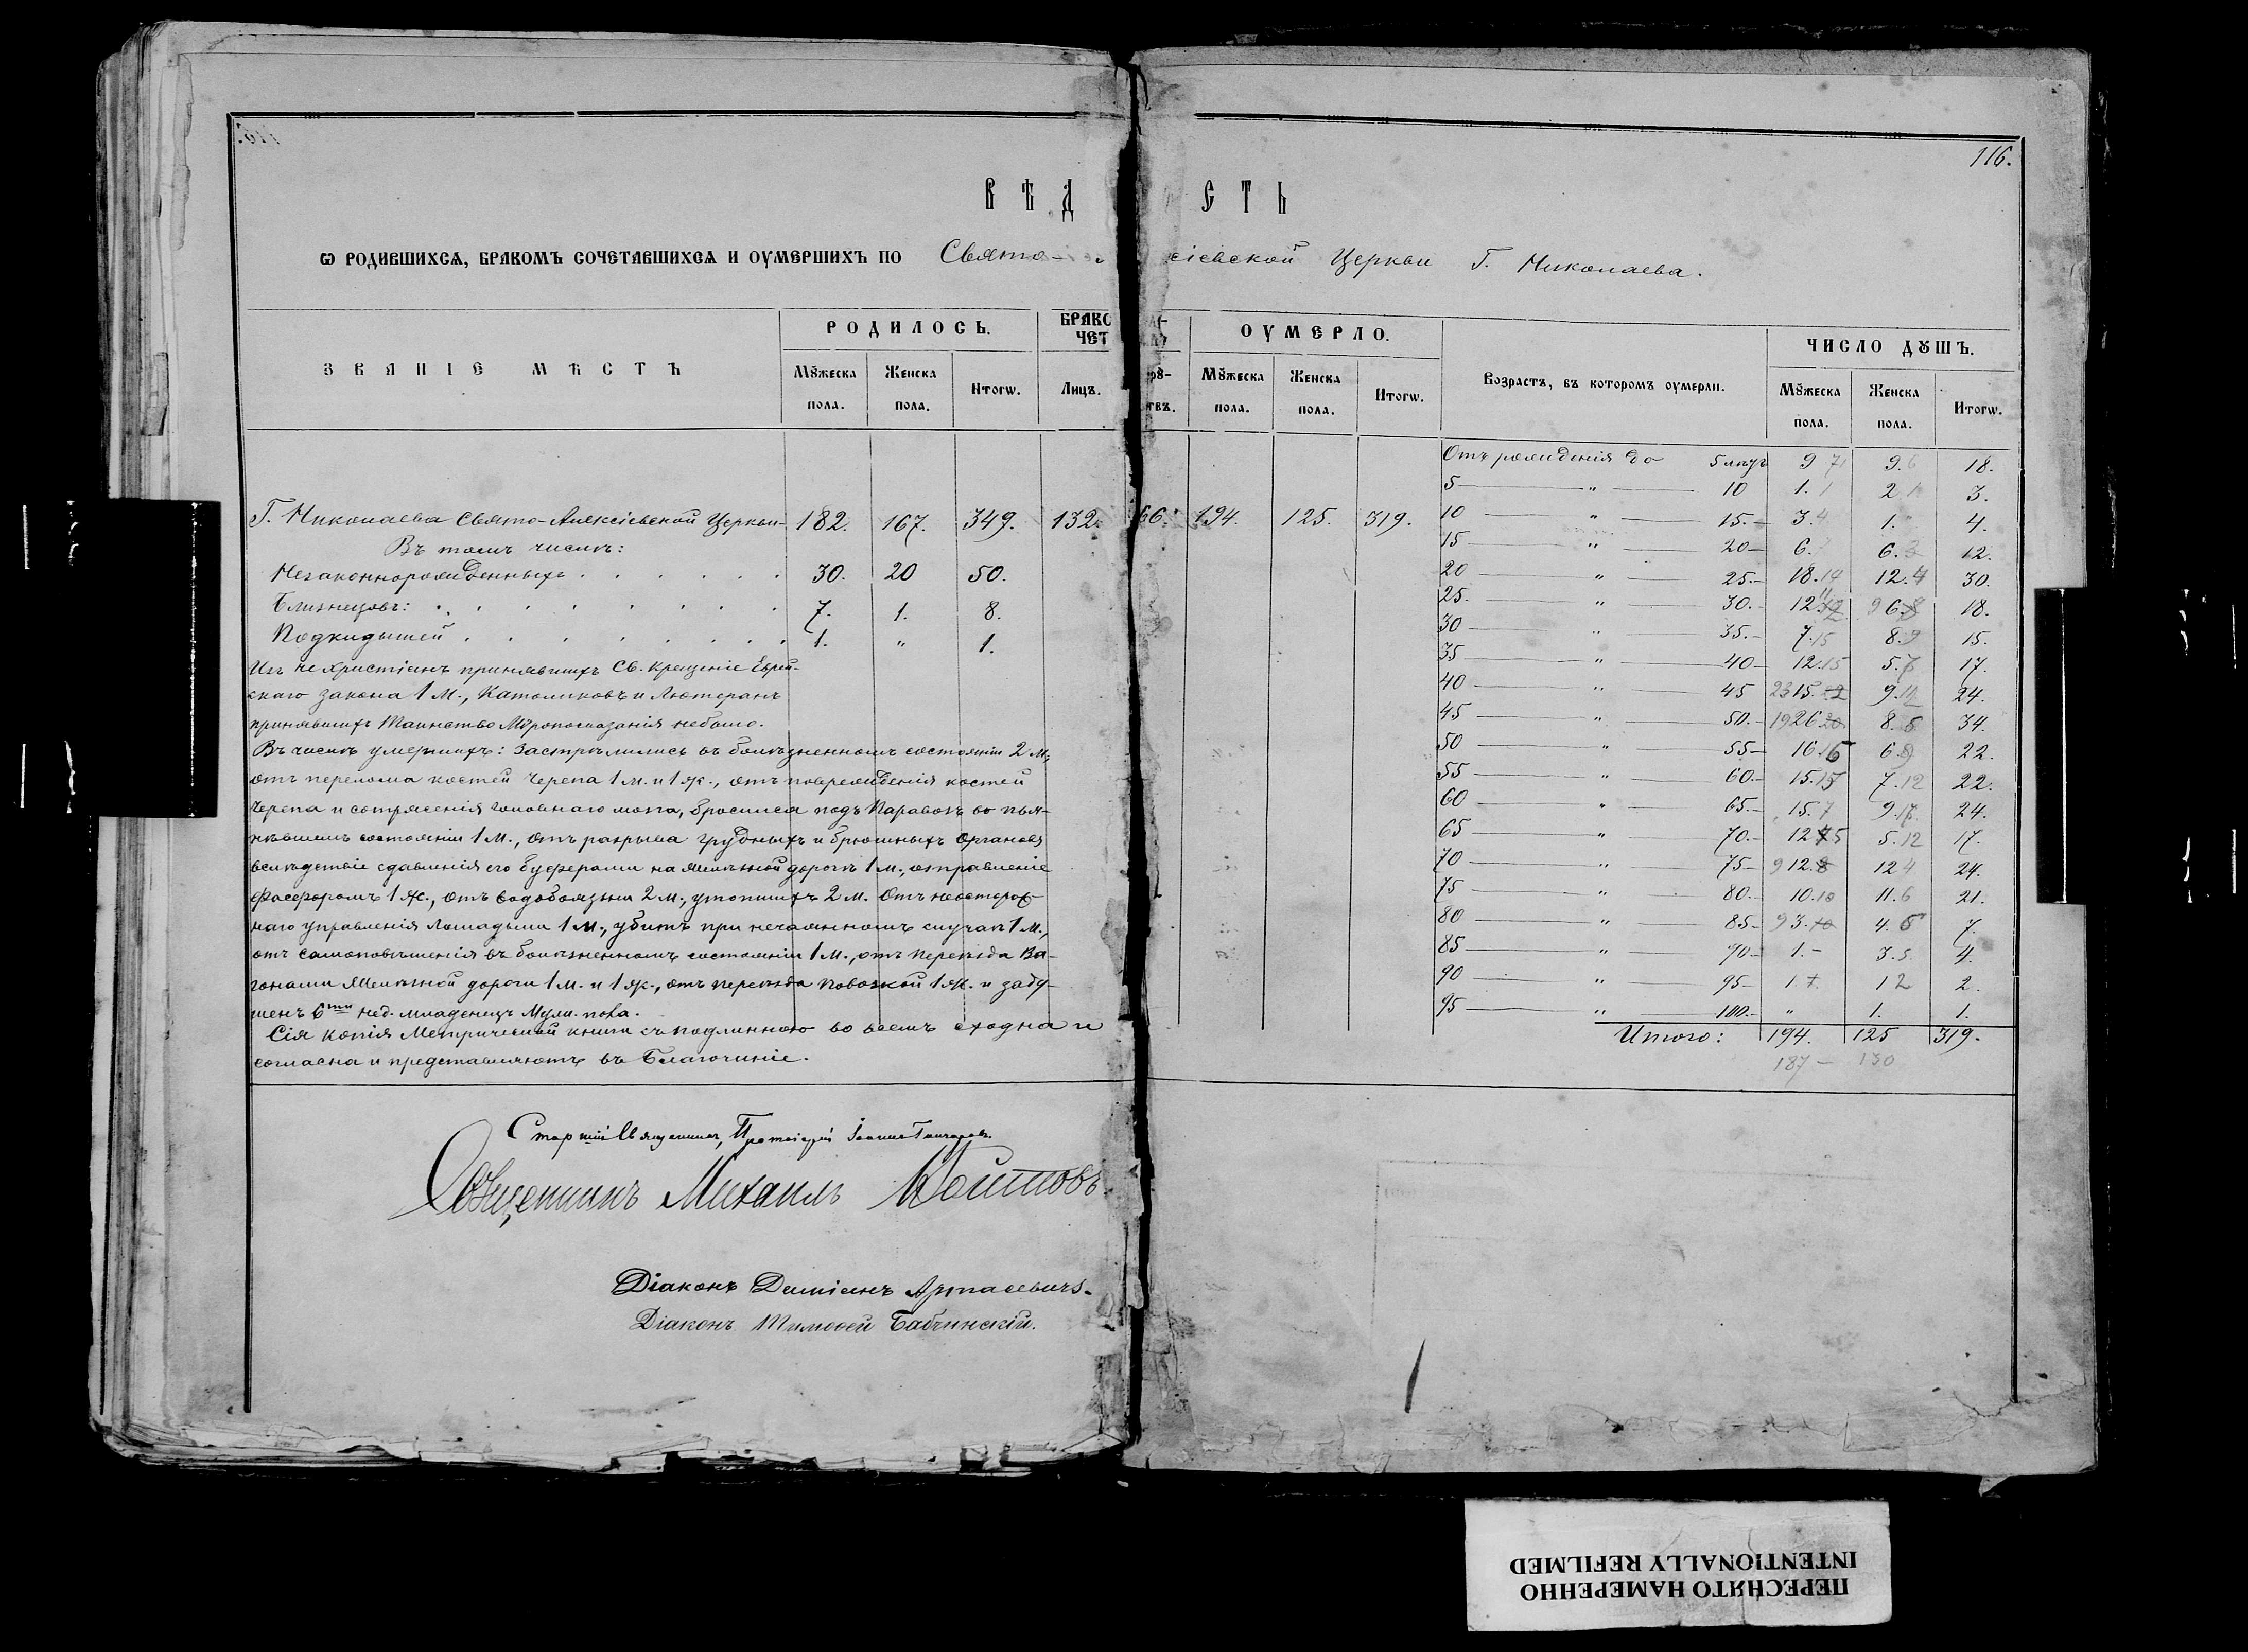 116.
ВѢД СТЬ
Ѡ РОДИВШИХСѦ, БРАКОМЪ СОЧЕТАВШИХСѦ И ОУМЕРШИХЪ ПО Свято- сіевской Церкви Г. Николаева.
ЗВАНІЕ МѢСТЪ
РОДИЛОСЬ.
Мꙋжеска пола.
Женска пола.
Итогѡ.
БРАКО
ЧЕТ
Лицъ.
твъ.
ОУМЕРЛО.
Мꙋжеска пола.
Женска пола.
Итогѡ.
Возрастъ, въ которомъ оумерли.
ЧИСЛО ДꙋШЪ.
Мꙋжеска пола.
Женска пола.
Итогѡ.
Г. Николаева Свято-Алексіевской Церкви- 182. 167. 349. 132. 66. 194. 125. 319.
Въ томъ числѣ:
Незаконнорожденныхъ . . . . . . 30. 20 50.
Близнецовъ: . . . . . . . . 7. 1. 8.
Подкидышей . . . . . . . . 1. " 1.
Изъ не христіанъ принявшихъ Св. крещеніе Еврей-
скаго закона 1 м., Католиковъ и Лютеранъ
принявшихъ Таинство Мѵропомазанія небыло.
Въ числѣ умершихъ: застрѣлились въ болѣзненномъ состояніи 2 м.,
отъ перелома костей черепа 1 м. и 1 ж., отъ поврежденія костей
черепа и сотрясенія головнаго мозга, бросился подъ Паравозъ во пья-
нѣвшемъ состояніи 1 м., отъ разрыва грудныхъ и брюшныхъ органовъ
вслѣдствіе сдавленія его буферами на желѣзной дорогѣ 1 м., отравленіе
Фосфоромъ 1 ж., отъ водобоязни 2 м., утопшихъ 2 м. отъ неосторож-
наго управленія лошадьми 1 м., убитъ при нечаянномъ случаѣ 1 м.,
отъ самоповѣшенія въ болѣзненномъ состояніи 1 м., отъ переѣзда Ва-
гонами желѣзной дороги 1 м. и 1 ж., отъ переѣзда повозкой 1 ж. и заду-
шенъ 6ти нед. младенецъ Муж. пола.
Сія копія Метрической книги съ подлинною во всемъ сходна и
согласна и представляютъ въ Благочиніе.
Отъ рожденія до 5 лѣтъ 9 71 9. 6 18.
5 " 10 1. 1 2 1 3.
10 " 15. 3. 4 1. 4.
15 " 20 6. 6. 3 12.
20 " 25. 18. 14 12. 4 30.
25. " 30. 12 11 9 6. 8 18.
30 " 35. 7. 15 8. 9 15.
35 " 40 12. 15 5. 7 17.
40 " 45 23 15. 22 9. 12 24.
45 " 50. 19 26 20 8. 6 34.
50 " 55 16. 16 6 9 22.
55 " 60. 15. 15 7. 12 22.
60 " 65. 15. 7 9. 17. 24.
65 " 70. 12 15 5. 12 17.
70 " 75 9 12. 8 12 4 24.
75 " 80. 10. 10 11. 6 21.
80 " 85 9 3. 10 4. 6 7.
85 " 90 1. - 3. 5. 4.
90 " 95 1. 1 2 2.
95 " 100. " 1. 1.
Итого: 194. 125 319.
187 — 130
Старшій Священникъ, Протоіерей Іоаннъ Гончаровъ
Священникъ Михаилъ
Діаконъ Даміанъ
Діаконъ Тимоѳей Бабчинскій.
ПЕРЕСНЯТО НАМЕРЕННО
INTENTIONALLY REFILMED